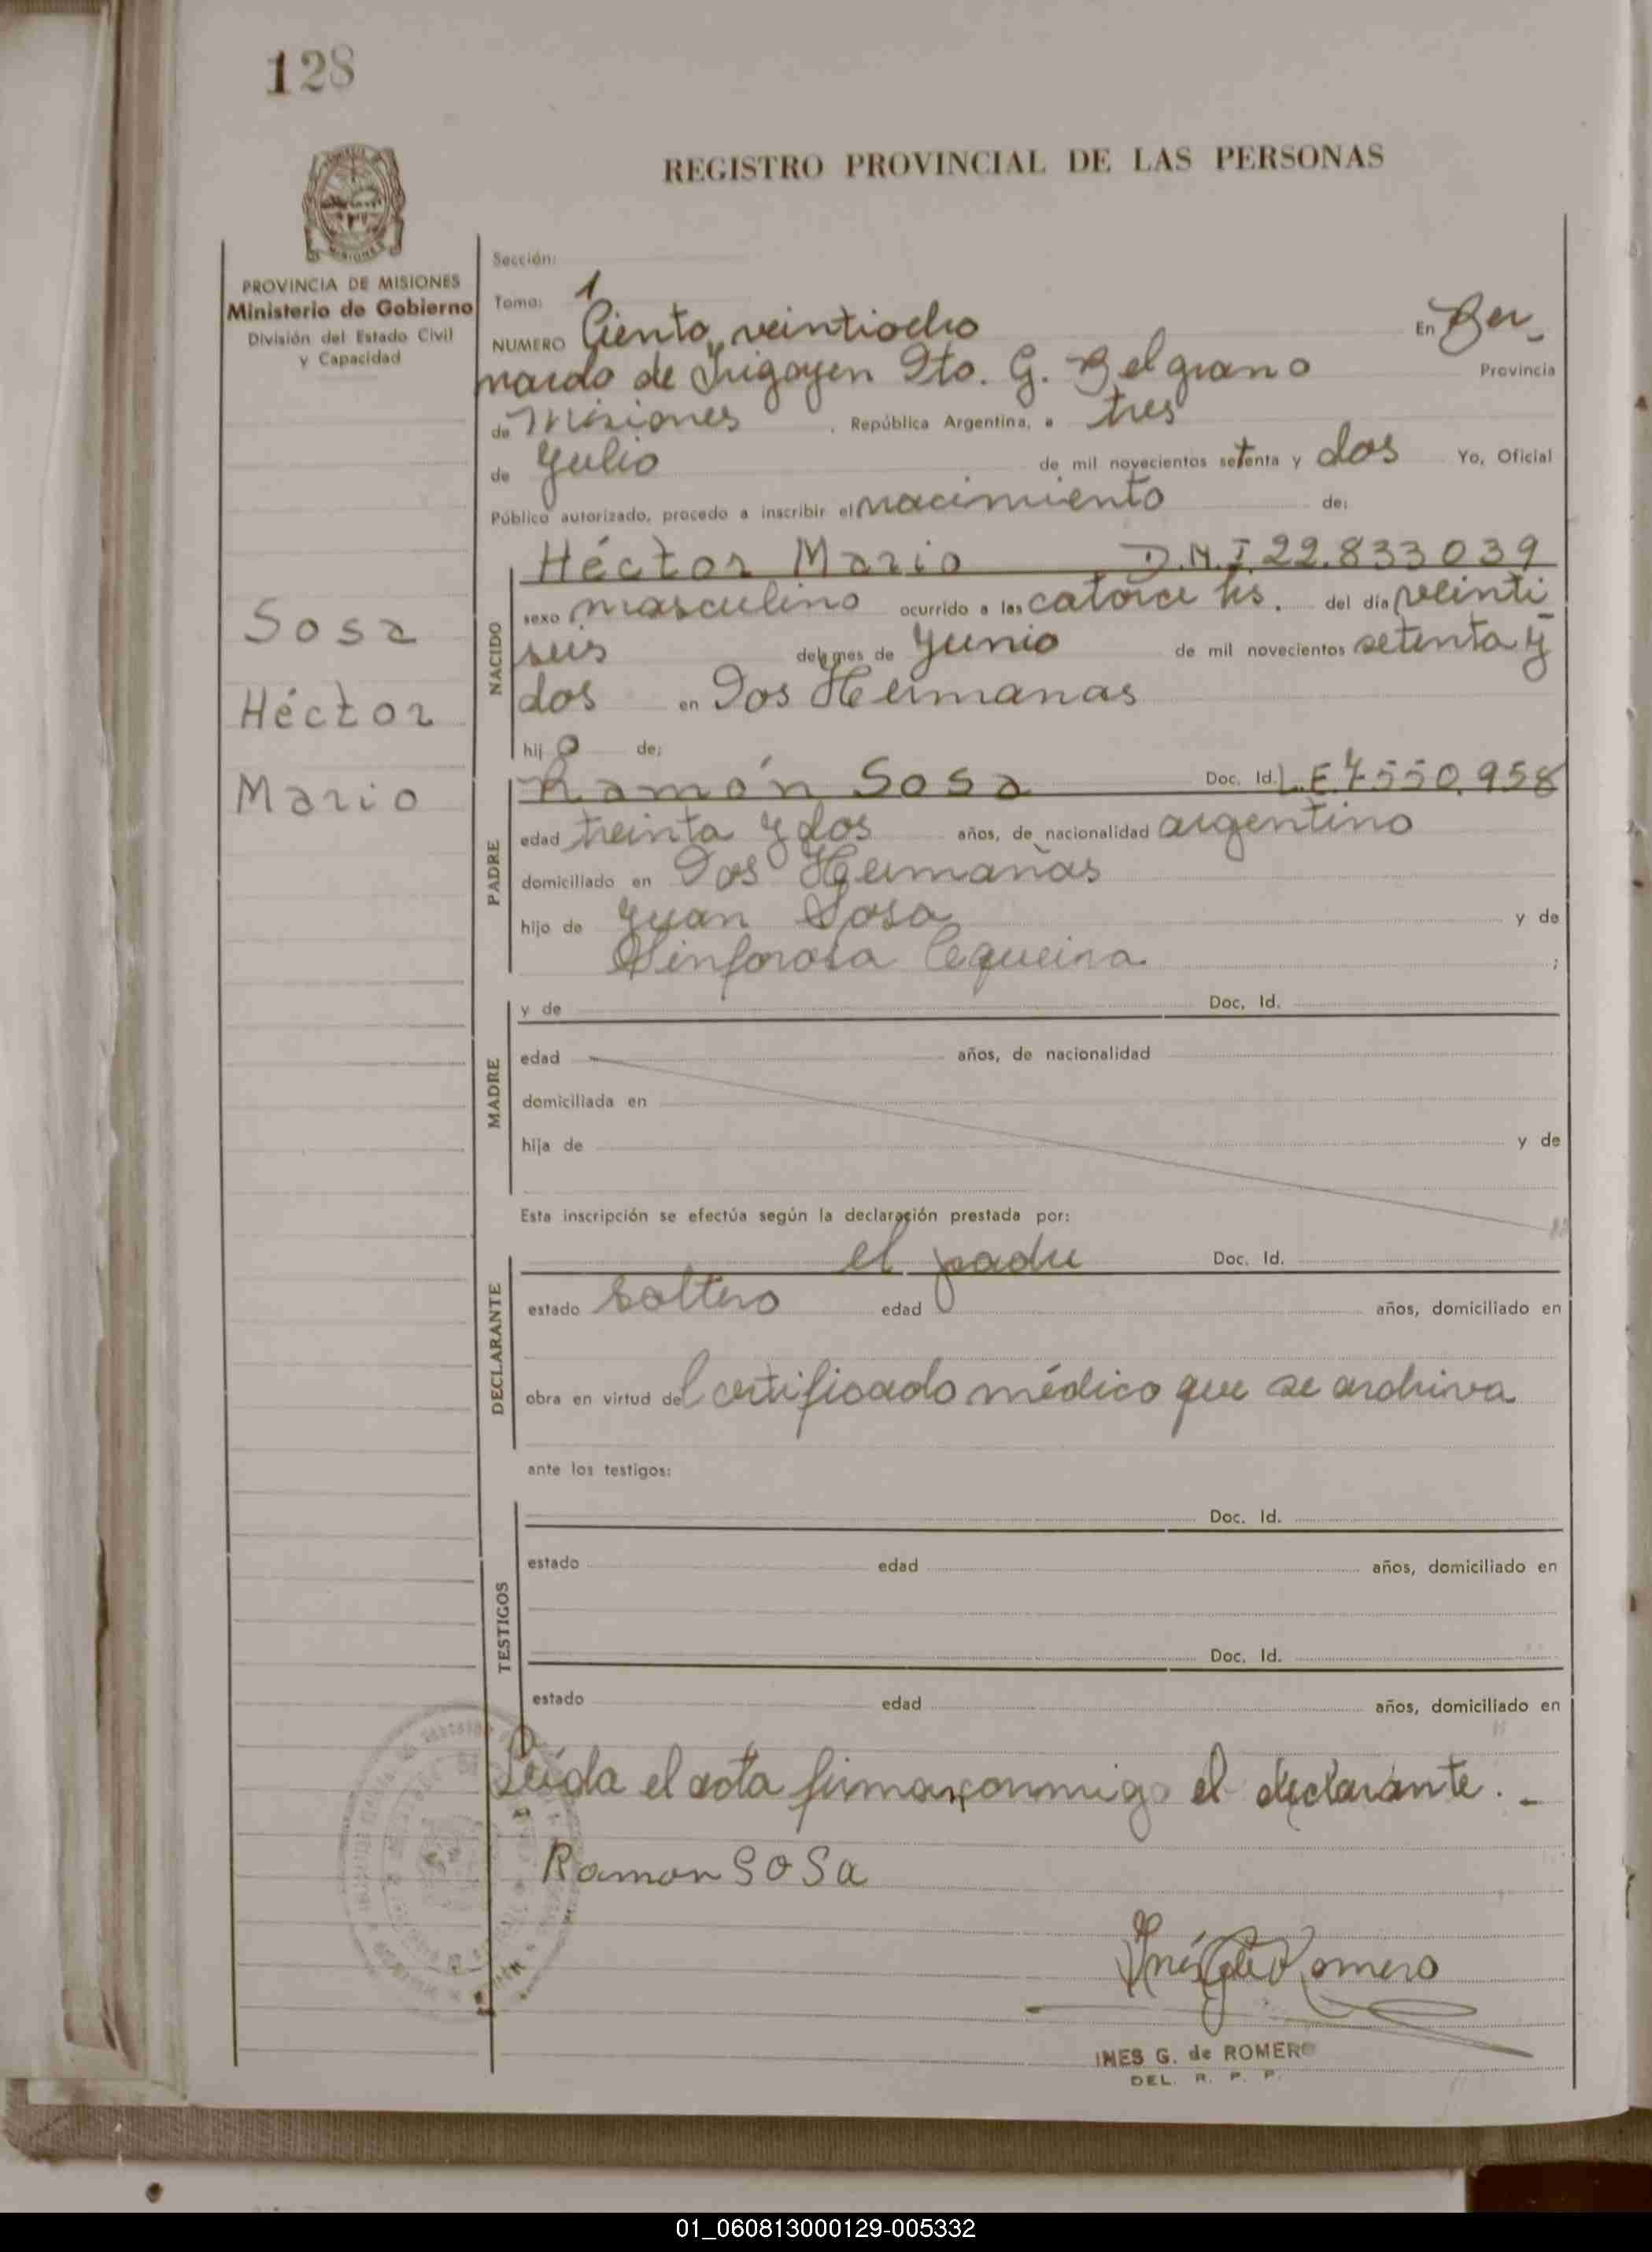 128
REGISTRO PROVINCIAL DE LAS PERSONAS
MISIONES
PROVINCIA DE MISIONES
Ministerio de Gobierno
División del Estado Civil
y Capacidad
Sosa
Héctor
Mario
Sección:
Tomo: 1
NUMERO Ciento veintiocho En Ber
nardo de Irigoyen Dto. G. Belgrano Provincia
de Misiones, República Argentina, a tres
de Julio de mil novecientos setenta y dos Yo, Oficial
Público autorizado, procedo a inscribir el nacimiento de:
Héctor Mario D.N.I. 22.833039
NACIDO
sexo masculino ocurrido a las catorce hs. del día veinti
seis del mes de Junio de mil novecientos setenta y
dos en Dos Hermanas
hijo de:
PADRE
Ramón Sosa Doc. Id. L.E 7550.958
edad treinta y dos años, de nacionalidad argentino
domiciliado en Dos Hermanas
hijo de Juan Sosa y de
Sinforosa Cequeira ;
MADRE
y de Doc. Id.
edad años, de nacionalidad
domiciliada en
hija de y de
Esta inscripción se efectúa según la declaración prestada por:
DECLARANTE
el padre Doc. Id.
estado soltero edad años, domiciliado en
obra en virtud del certificado médico que se archiva
ante los testigos:
TESTIGOS
Doc. Id.
estado edad años, domiciliado en
Doc. Id.
estado edad años, domiciliado en
Leída el acta firma conmigo el declarante.
Ramon SOSa
Inés G de Romero
INES G. de ROMERO
DEL. R. P. P.
01_060813000129-005332